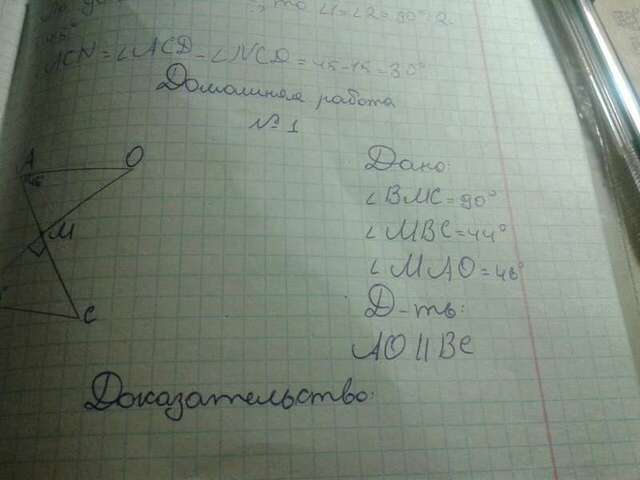 то ∠1=∠2=90°:2
45°
ACN=∠ACD-∠NCD=45-15=30°
Домашняя работа
№1
A O
46
M
C
Дано:
∠BMC=90°
∠MBC=44°
∠MAO=46°
Д-ть:
AO||BC
Доказательство: